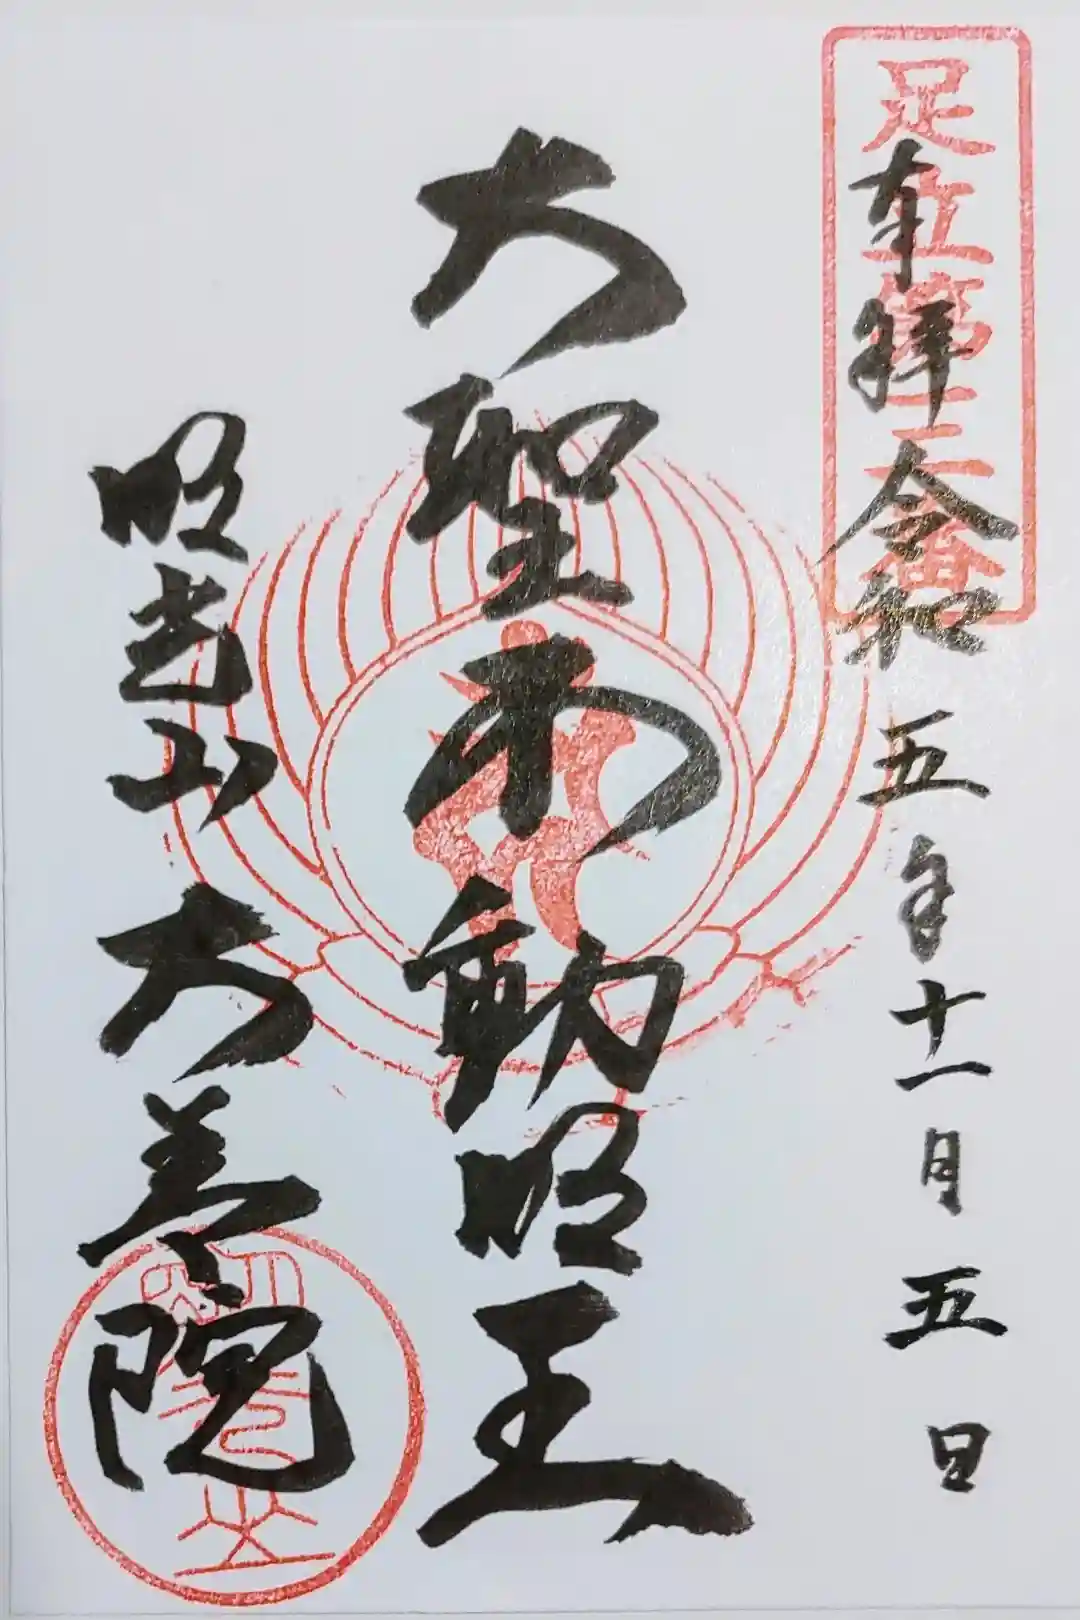 足立第十二番
奉拝 令和五年十一月五日
大聖不動明王
明光山 大善院